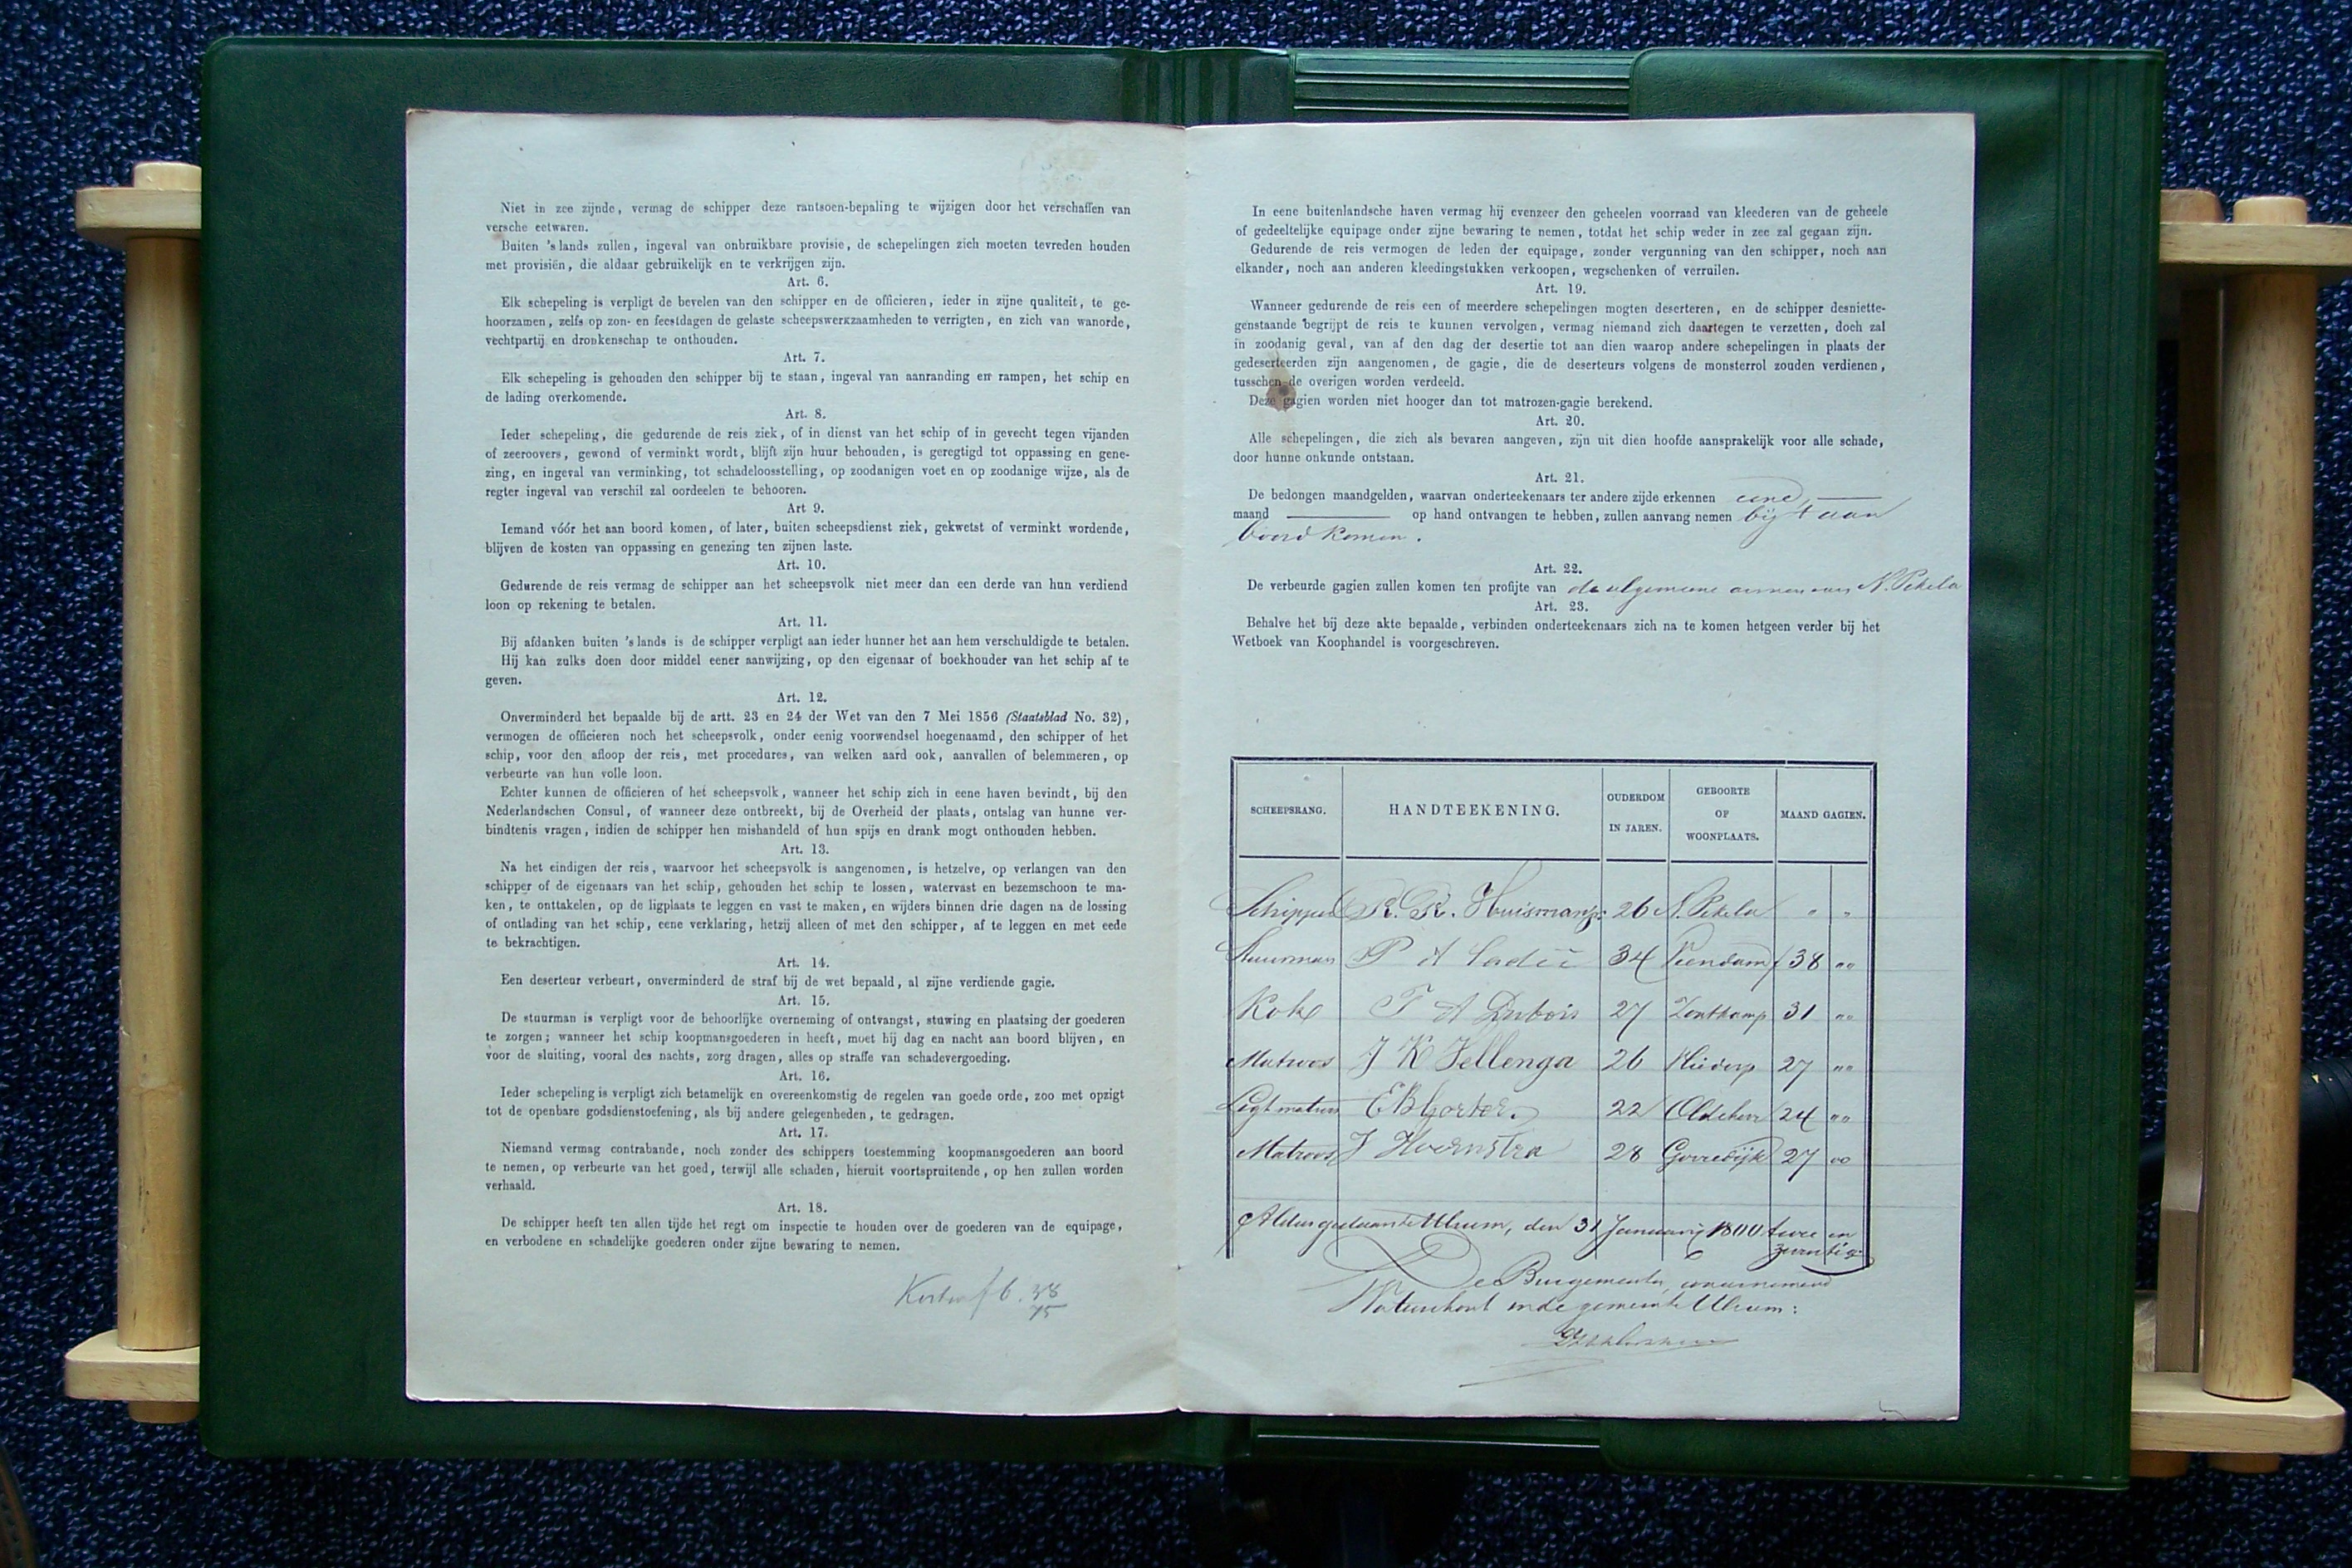 Niet in zee zijnde, vermag de schipper deze rantsoen-bepaling te wijzigen door het verschaffen van
versche eetwaren.
Buiten 's lands zullen, ingeval van onbruikbare provisie, de schepelingen zich moeten tevreden houden
met provisiën, die aldaar gebruikelijk en te verkrijgen zijn.
Art. 6.
Elk schepeling is verpligt de bevelen van den schipper en de officieren, ieder in zijne qualiteit, te ge-
hoorzamen, zelfs op zon- en feestdagen de gelaste scheepswerkzaamheden te verrigten, en zich van wanorde,
vechtpartij en dronkenschap te onthouden.
Art. 7.
Elk schepeling is gehouden den schipper bij te staan, ingeval van aanranding en rampen, het schip en
de lading overkomende.
Art. 8.
Ieder schepeling, die gedurende de reis ziek, of in dienst van het schip of in gevecht tegen vijanden
of zeeroovers, gewond of verminkt wordt, blijft zijn huur behouden, is geregtigd tot oppassing en gene-
zing, en ingeval van verminking, tot schadeloosstelling, op zoodanigen voet en op zoodanige wijze, als de
regter ingeval van verschil zal oordeelen te behooren.
Art 9.
Iemand vóór het aan boord komen, of later, buiten scheepsdienst ziek, gekwetst of verminkt wordende,
blijven de kosten van oppassing en genezing ten zijnen laste.
Art. 10.
Gedurende de reis vermag de schipper aan het scheepsvolk niet meer dan een derde van hun verdiend
loon op rekening te betalen.
Art. 11.
Bij afdanken buiten 's lands is de schipper verpligt aan ieder hunner het aan hem verschuldigde te betalen.
Hij kan zulks doen door middel eener aanwijzing, op den eigenaar of boekhouder van het schip af te
geven.
Art. 12.
Onverminderd het bepaalde bij de artt. 23 en 24 der Wet van den 7 Mei 1856 (Staatsblad No. 32),
vermogen de officieren noch het scheepsvolk, onder eenig voorwendsel hoegenaamd, den schipper of het
schip, voor den afloop der reis, met procedures, van welken aard ook, aanvallen of belemmeren, op
verbeurte van hun volle loon.
Echter kunnen de officieren of het scheepsvolk, wanneer het schip zich in eene haven bevindt, bij den
Nederlandschen Consul, of wanneer deze ontbreekt, bij de Overheid der plaats, ontslag van hunne ver-
bindtenis vragen, indien de schipper hen mishandeld of hun spijs en drank mogt onthouden hebben.
Art. 13.
Na het eindigen der reis, waarvoor het scheepsvolk is aangenomen, is hetzelve, op verlangen van den
schipper of de eigenaars van het schip, gehouden het schip te lossen, watervast en bezemschoon te ma-
ken, te onttakelen, op de ligplaats te leggen en vast te maken, en wijders binnen drie dagen na de lossing
of ontlading van het schip, eene verklaring, hetzij alleen of met den schipper, af te leggen en met eede
te bekrachtigen.
Art. 14.
Een deserteur verbeurt, onverminderd de straf bij de wet bepaald, al zijne verdiende gagie.
Art. 15.
De stuurman is verpligt voor de behoorlijke overneming of ontvangst, stuwing en plaatsing der goederen
te zorgen; wanneer het schip koopmansgoederen in heeft, moet hij dag en nacht aan boord blijven, en
voor de sluiting, vooral des nachts, zorg dragen, alles op straffe van schadevergoeding.
Art. 16.
Ieder schepeling is verpligt zich betamelijk en overeenkomstig de regelen van goede orde, zoo met opzigt
tot de openbare godsdienstoefening, als bij andere gelegenheden, te gedragen.
Art. 17.
Niemand vermag contrabande, noch zonder des schippers toestemming koopmansgoederen aan boord
te nemen, op verbeurte van het goed, terwijl alle schaden, hieruit voortspruitende, op hen zullen worden
verhaald.
Art. 18.
De schipper heeft ten allen tijde het regt om inspectie te houden over de goederen van de equipage,
en verbodene en schadelijke goederen onder zijne bewaring te nemen.
f 6. 38
75
In eene buitenlandsche haven vermag hij evenzeer den geheelen voorraad van kleederen van de geheele
of gedeeltelijke equipage onder zijne bewaring te nemen, totdat het schip weder in zee zal gegaan zijn.
Gedurende de reis vermogen de leden der equipage, zonder vergunning van den schipper, noch aan
elkander, noch aan anderen kleedingstukken verkoopen, wegschenken of verruilen.
Art. 19.
Wanneer gedurende de reis een of meerdere schepelingen mogten deserteren, en de schipper desniette-
genstaande begrijpt de reis te kunnen vervolgen, vermag niemand zich daartegen te verzetten, doch zal
in zoodanig geval, van af den dag der desertie tot aan dien waarop andere schepelingen in plaats der
gedeserteerden zijn aangenomen, de gagie, die de deserteurs volgens de monsterrol zouden verdienen,
tusschen de overigen worden verdeeld.
Deze gagien worden niet hooger dan tot matrozen-gagie berekend.
Art. 20.
Alle schepelingen, die zich als bevaren aangeven, zijn uit dien hoofde aansprakelijk voor alle schade,
door hunne onkunde ontstaan.
Art. 21.
De bedongen maandgelden, waarvan onderteekenaars ter andere zijde erkennen eene
maand op hand ontvangen te hebben, zullen aanvang nemen bij t aan
boord komen.
Art. 22.
De verbeurde gagien zullen komen ten profijte van de algemeene armen van N. Pekela
Art. 23.
Behalve het bij deze akte bepaalde, verbinden onderteekenaars zich na te komen hetgeen verder bij het
Wetboek van Koophandel is voorgeschreven.
SCHEEPSRANG. HANDTEEKENING. OUDERDOM IN JAREN. GEBOORTE OF WOONPLAATS. MAAND GAGIEN.
Schipper R. R. Huisman 26 N. Pekela " "
Stuurman P A Sadeé 34 Veendam f 38 ""
Kok T A Dubois 27 Zoutkamp 31 ""
Matroos J K Jellenga 26 27 ""
Ligtmatroos E B Gorter. 22 24 ""
Matroos J Hoernstra 28 Gorredijk 27 00
Aldus gedaan te Ulrum, den 31 Januarij 1800 twee en
zeventig.
De Burgemeester, waarnemend
Waterschout in de gemeente Ulrum: